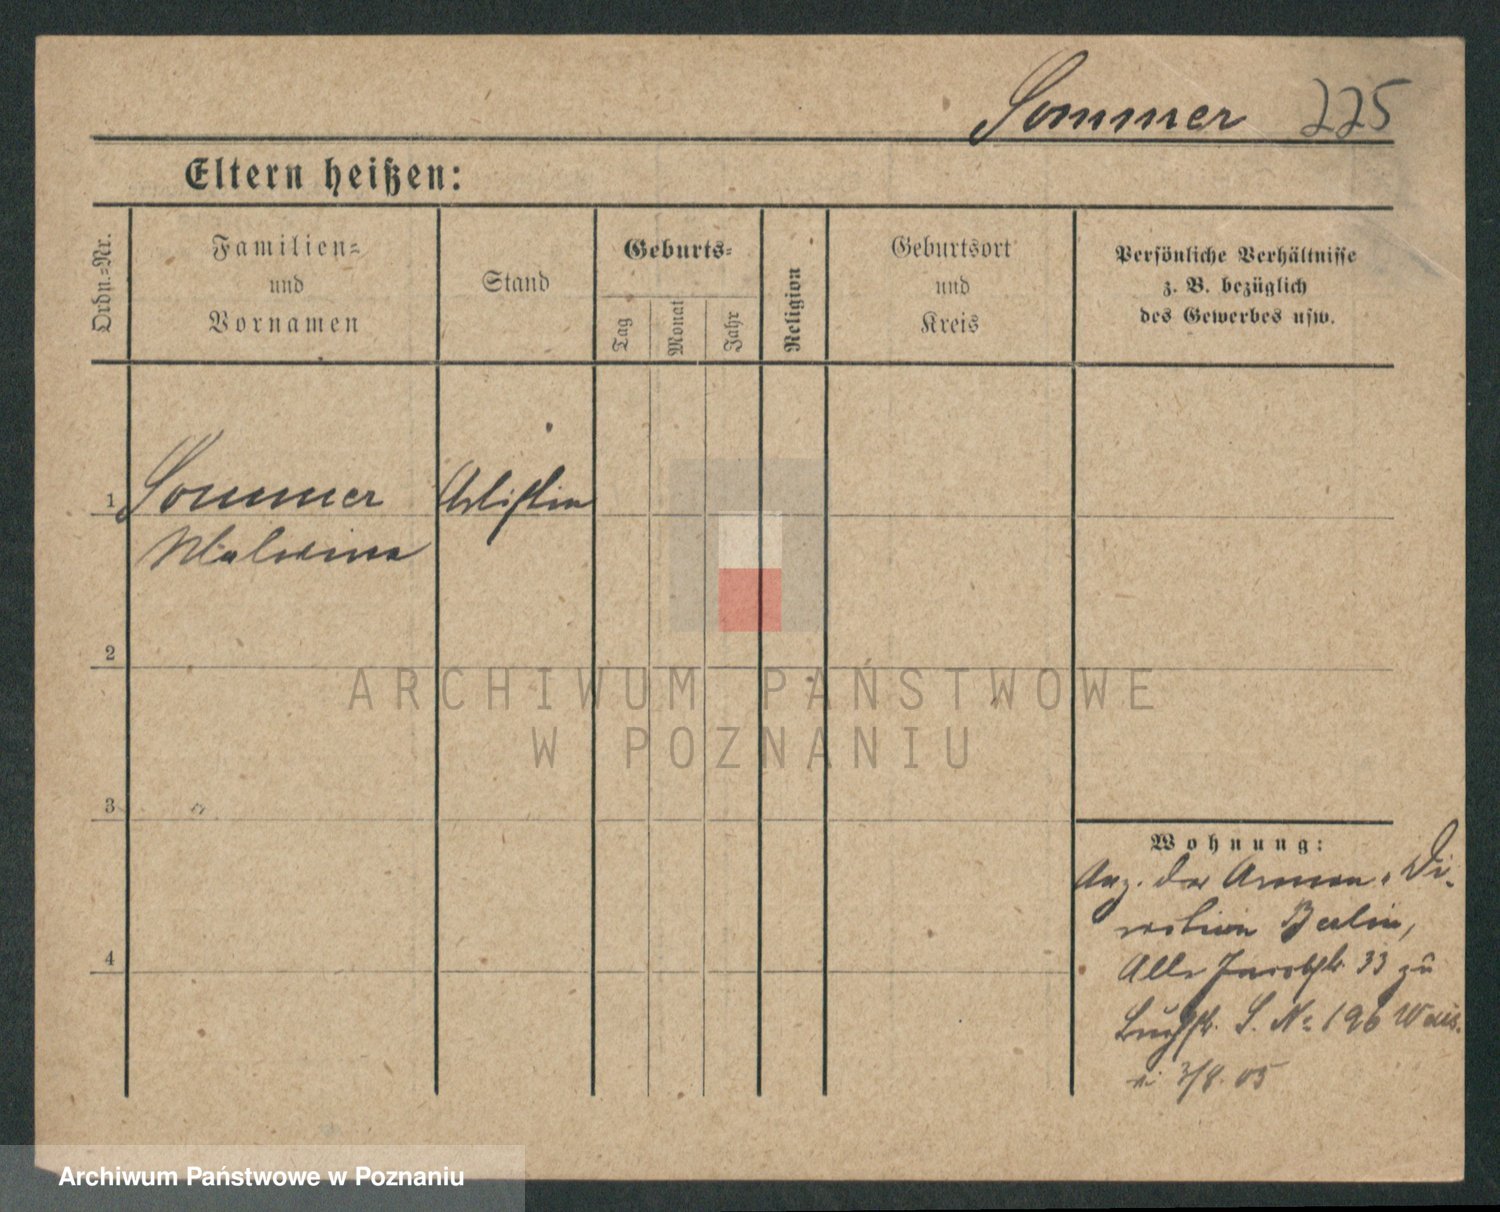 Sommer 225
Eltern heißen:
Ordn.-Nr.
Familien-
und
Vornamen
Stand
Geburts-
Tag
Monat
Jahr
Religion
Geburtsort
und
Kreis
Persönliche Verhältnisse
z. B. bezüglich
des Gewerbes usw.
1
Sommer
Artistin
Malwina
2
ARCHIWUM PAŃSTWOWE
W POZNANIU
3
Wohnung:
Anz. der Armen-Di-
rektion Berlin,
Alte Jacobstr. 33 zu
S. No 196 Wais.
4
3/8. 05
Archiwum Państwowe w Poznaniu